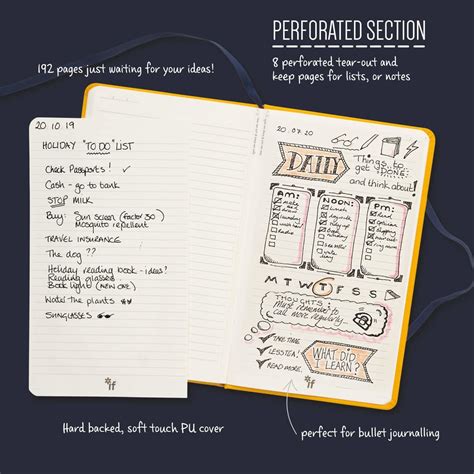 PERFORATED SECTION
192 pages just waiting for your ideas!
8 perforated tear-out and
keep pages for lists, or notes
20.10.19
HOLIDAY "TO DO" LIST
Check Passports! ✓
Cash - go to bank
STOP MILK
Buy: Sun screen (factor 30)
Mosquito repellent
TRAVEL INSURANCE
The dog ??
Holiday reading book - ideas!
Reading glasses
Book light (NEW ONE)
Water the plants
SUNGLASSES
if
20.07.20
DAILY
Things to
get DONE
and think about!
AM:
make
radio
NOON:
lunch
day with
vet
PM:
read
shopping
M T W T F S S
THOUGHTS:
Must remember to
call mum regularly...
✓ TAKE TIME
✓ LESS TEA!
✓ READ MORE.
WHAT DID
I LEARN?
if
Hard backed, soft touch PU cover
perfect for bullet journalling